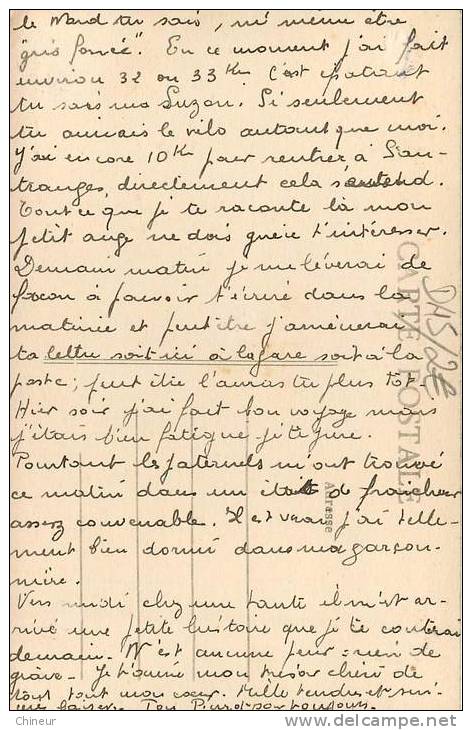 le Mand tu sais, ni même être
"gris foncé". En ce moment j'ai fait
environ 32 ou 33 Km. C'est épatant
tu sais ma Suzon. Si seulement
tu aimais le vélo autant que moi.
J'ai encore 10 Km pour rentrer à Sau-
tranges, directement cela s'entend.
Tout ce que je te raconte là mon
petit ange ne dois guère t'intéresser.
Demain matin je me lèverai de
facon à pouvoir t'écrire dans la
matinée et peut être j'amènerai
ta lettre soit ici à la gare soit à la
poste; peut être l'auras tu plus tôt.
Hier soir j'ai fait bon voyage mais
j'étais bien fatigué je te jure.
Pourtant les paternels m'ont trouvé
ce matin dans un état de fraicheur
assez convenable. Il est vrai j'ai telle-
ment bien dormi dans ma garçon-
nière.
Vers midi chez une tante il m'est ar-
rivé une petite histoire que je te conterai
demain. N'est aucune peur: rien de
grave. Je t'aime mon trésor chéri de
tout tout mon coeur. Mille tendres et
baisers. Ton Pierrot pour toujours.
CARTE POSTALE
Adresse
Chineur
WWW.DELCAMPE.NET